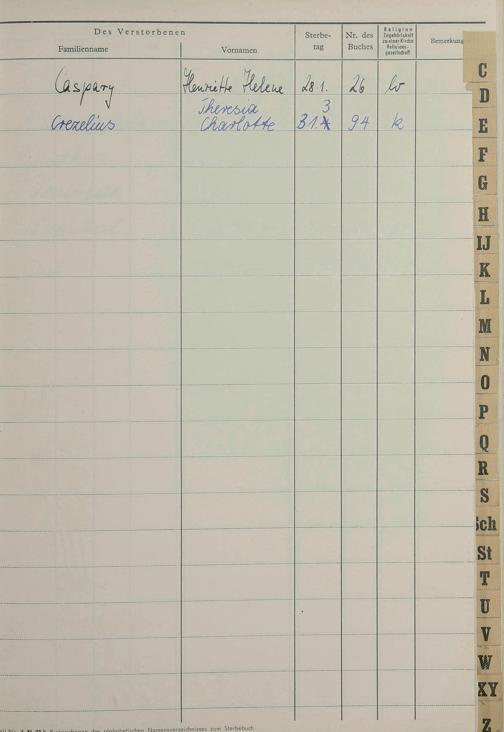 Des Verstorbenen
Familienname
Vornamen
Sterbe-
tag
Nr. des
Buches
Religion
Zugehörigkeit
zu einer Kirche
Religions-
gesellschaft
Bemerkung
Caspary Henriette Helene 28.1. 26 lv
Theresia 3
Crezelius Charlotte 31. 94 k
C
D
E
F
G
H
IJ
K
L
M
N
O
P
Q
R
S
Sch
St
T
U
V
W
XY
Z
des alphabetischen Namensverzeichnisses zum Sterbebuch